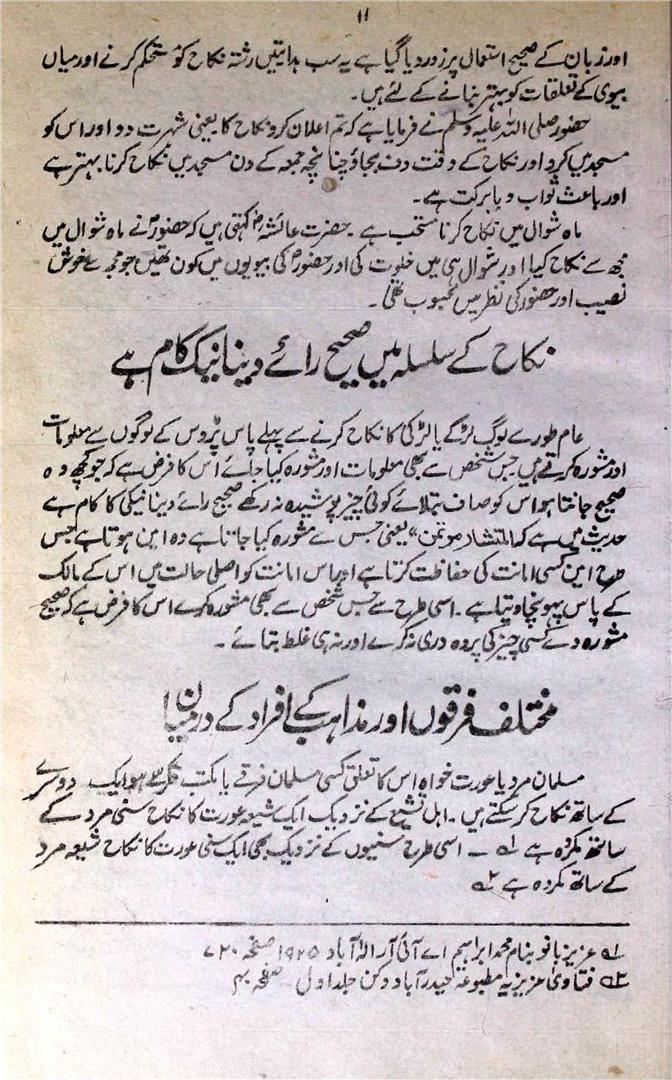 ۱۱
اور زبان کے صحیح استعمال پر زور دیا گیا ہے یہ سب ہدایتیں رشتہ نکاح کو مستحکم کرنے اور میاں
بیوی کے تعلقات کو بہتر بنانے کے لئے ہیں۔
حضور صلی اللہ علیہ وسلم نے فرمایا ہے کہ تم اعلان کرو نکاح کا یعنی شہرت دو اور اس کو
مسجد میں کرو اور نکاح کے وقت دف بجاؤ چنانچہ جمعہ کے دن مسجد میں نکاح کرنا بہتر ہے
اور باعث ثواب و بابرکت ہے۔
ماہ شوال میں نکاح کرنا مستحب ہے۔ حضرت عائشہؓ کہتی ہیں کہ حضورؐ نے ماہ شوال میں
مجھ سے نکاح کیا اور شوال ہی میں خلوت کی اور حضورؐ کی بیویوں میں کون تھیں جو مجھ سے خوش
نصیب اور حضورؐ کی نظر میں محبوب تھی۔
نکاح کے سلسلہ میں صحیح رائے دینا نیک کام ہے
عام طور سے لوگ لڑکے یا لڑکی کا نکاح کرنے سے پہلے پاس پڑوس کے لوگوں سے معلومات
اور مشورہ کرتے ہیں جس شخص سے بھی معلومات اور مشورہ کیا جائے اس کا فرض ہے کہ جو کچھ وہ
صحیح جانتا ہو اس کو صاف بتلائے کوئی چیز پوشیدہ نہ رکھے صحیح رائے دینا نیکی کا کام ہے
حدیث میں ہے کہ المتشار موتمن" یعنی جس سے مشورہ کیا جاتا ہے وہ امین ہوتا ہے جس
طرح امین کسی امانت کی حفاظت کرتا ہے اور اس امانت کو اصلی حالت میں اس کے مالک
کے پاس پہونچا دیتا ہے۔ اسی طرح سے جس شخص سے بھی مشورہ کرے اس کا فرض ہے کہ صحیح
مشورہ دے کسی چیز کی پردہ دری نہ کرے اور نہ ہی غلط بتائے۔
مختلف فرقوں اور مذاہب کے افراد کے درمیان
مسلمان مرد یا عورت خواہ اس کا تعلق کسی مسلمان فرقے یا مکتب فکر سے ہو ایک دوسرے
کے ساتھ نکاح کر سکتے ہیں۔ اہل تشیع کے نزدیک ایک شیعہ عورت کا نکاح سنی مرد کے
ساتھ مکروہ ہے ۱؎۔ اسی طرح سنیوں کے نزدیک بھی ایک سنی عورت کا نکاح شیعہ مرد
کے ساتھ مکروہ ہے ۲؎
۱؎ عزیز بانو بنام محمد ابراہیم اے آئی آر الہ آباد ۱۹۲۵ صفحہ ۷۲۰
۲؎ فتاویٰ عزیزیہ مطبوعہ حیدرآباد دکن جلد اول۔ صفحہ ۴۰